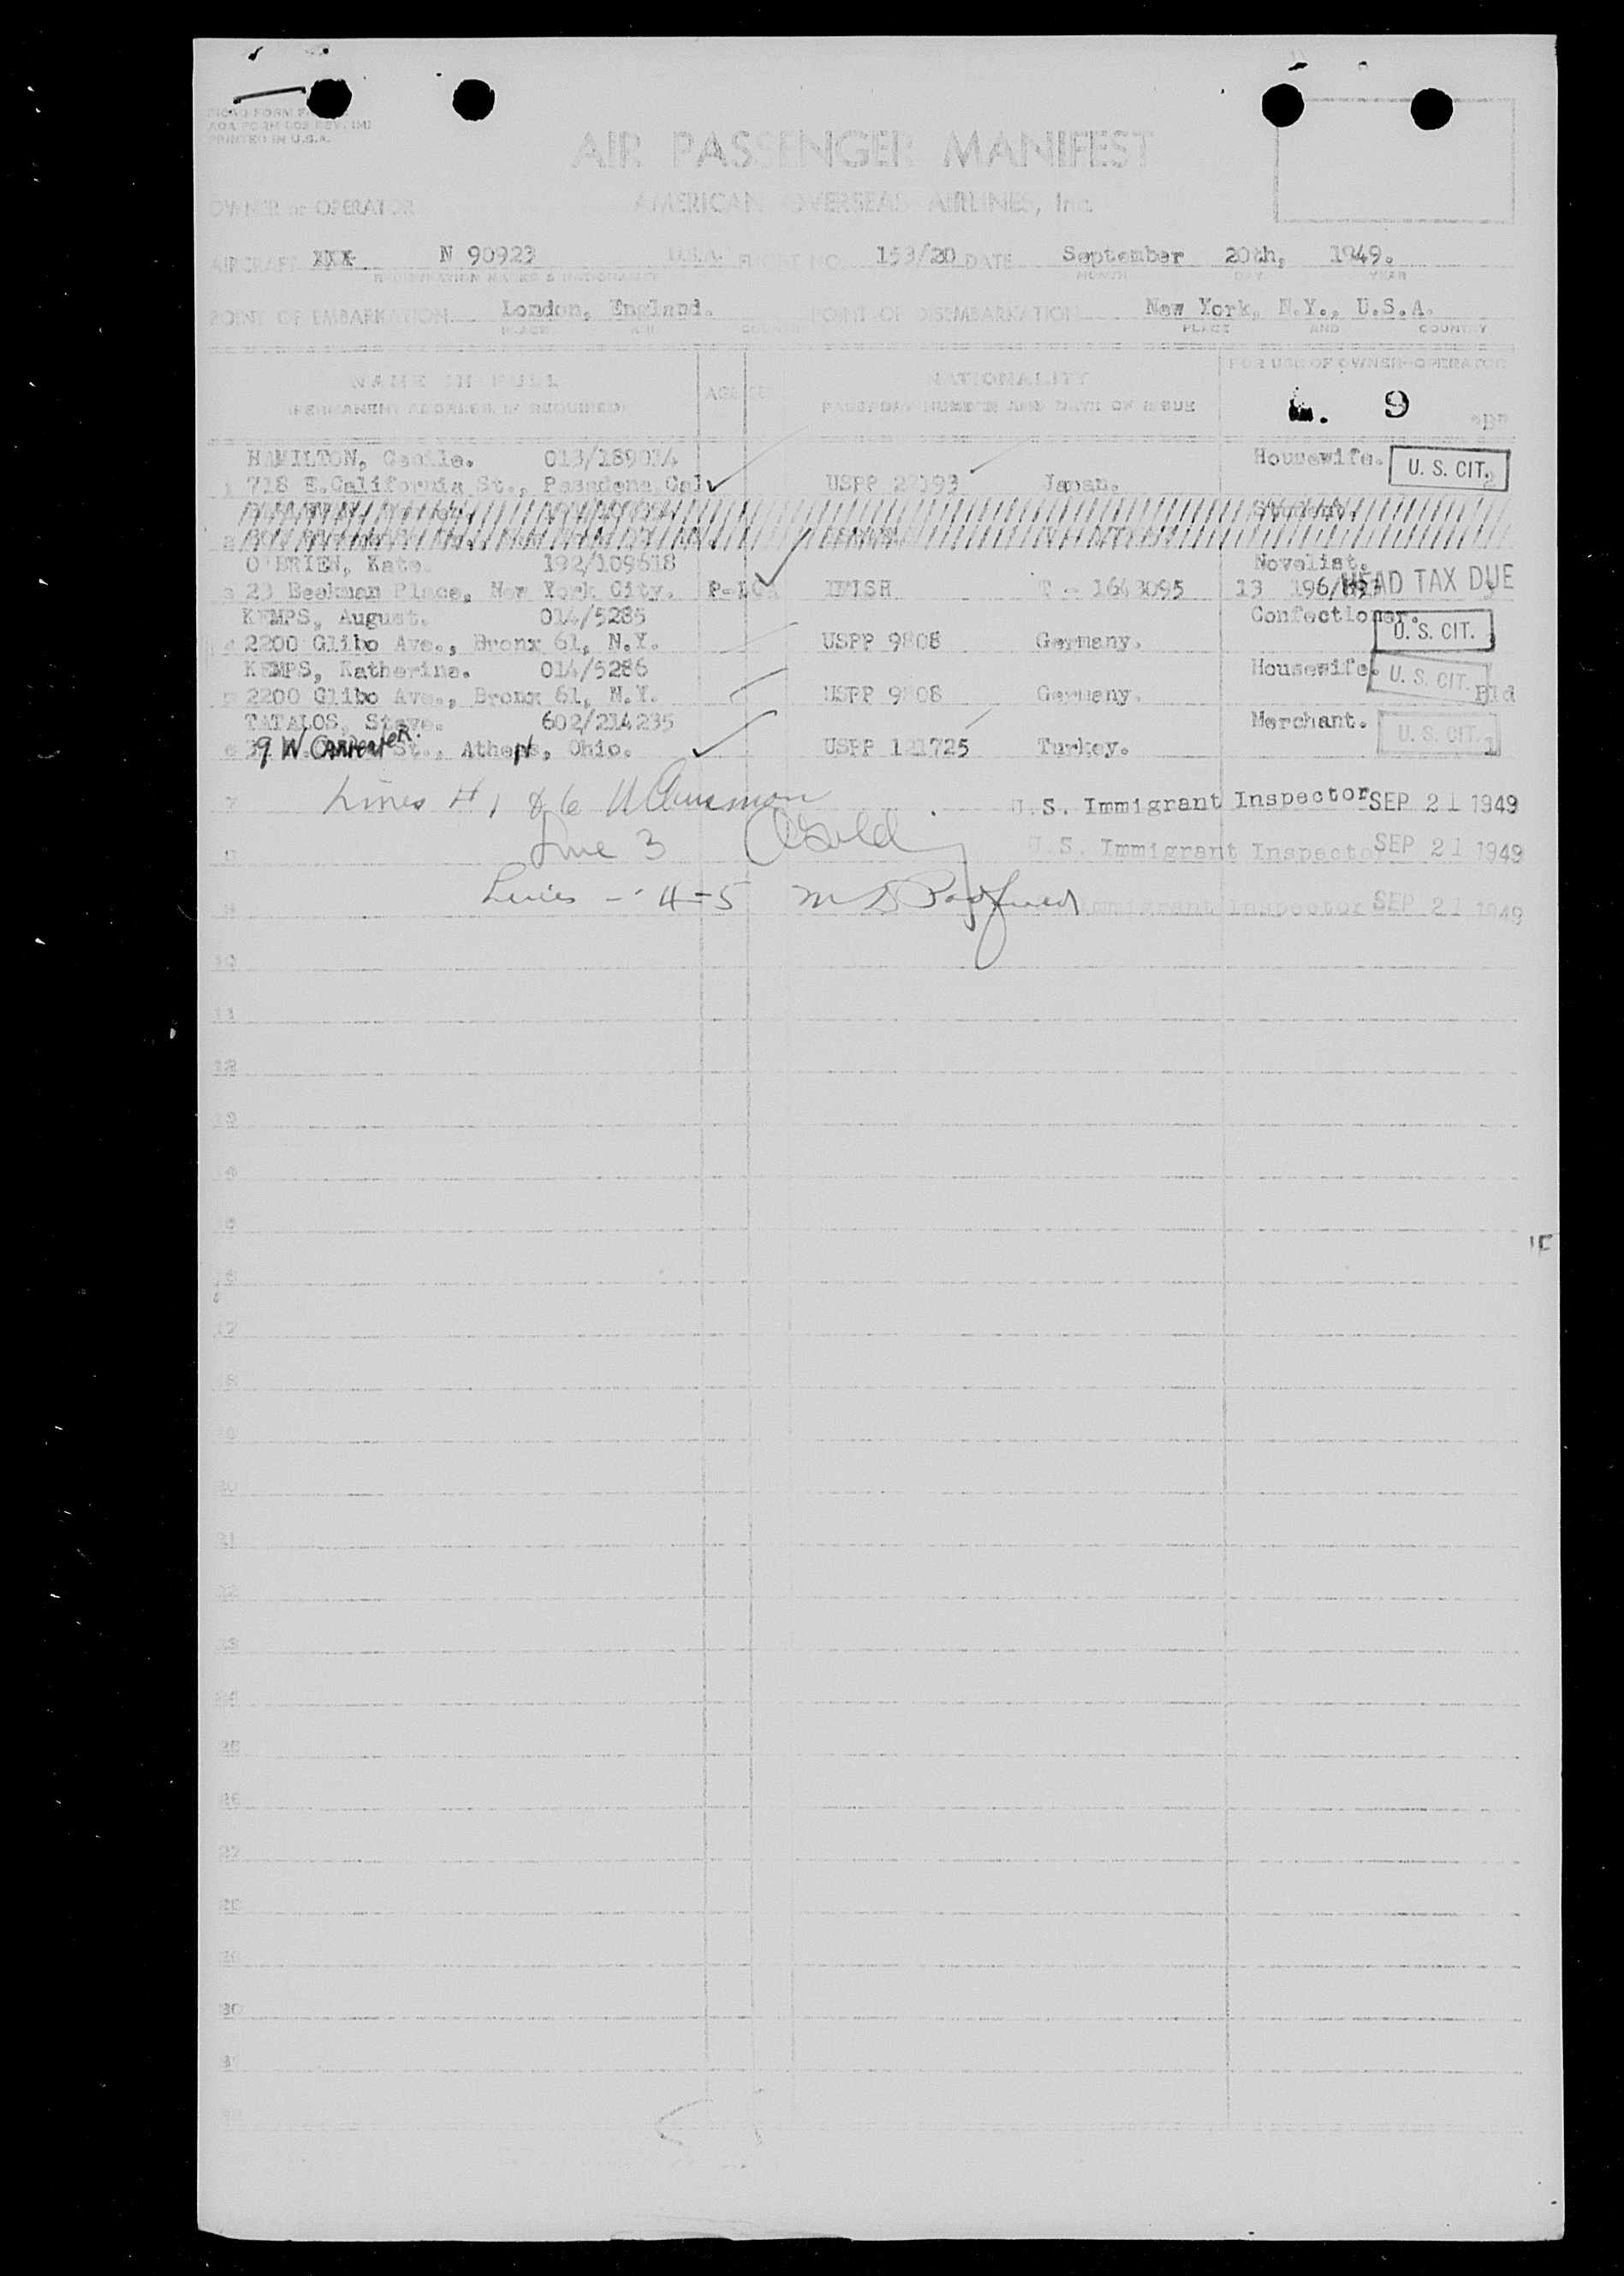 ADA FORM 603 REV. IMI
PRINTED IN U.S.A.
AIR PASSENGER MANIFEST
OWNER or OPERATOR AMERICAN OVERSEAS AIRLINES, Inc.
AIRCRAFT XXX N 90923 U.S.A. FLIGHT NO. 153/20 DATE September 20th, 1949.
REGISTRATION MARKS & NATIONALITY MONTH DAY YEAR
POINT OF EMBARKATION London, England. POINT OF DISEMBARKATION New York, N.Y., U.S.A.
PLACE AND COUNTRY PLACE AND COUNTRY
NAME IN FULL AGE SEX NATIONALITY FOR USE OF OWNER-OPERATOR
(PERMANENT ADDRESS IF REQUIRED) PASSPORT NUMBER AND DATE OF ISSUE 9 "B"
HAMILTON, 013/189034 Housewife. U. S. CIT.
1 718 E.California St., Pasadena, Cal. USPP Japan. 2
Student.
2
O'BRIEN, Kate. 192/109618 Novelist.
3 23 Beekman Place, New York City. IRISH 13 HEAD TAX DUE
KEMPS, August. 014/5285 Confectioner.
4 2200 Glibo Ave., Bronx 61, N.Y. USPP 9808 Germany. U. S. CIT.
KEMPS, Katherine. 014/5286 Housewife. U. S. CIT.
5 2200 Glibo Ave., Bronx 61, N.Y. USPP 9808 Germany.
TATALOS, Steve. 602/214235 Merchant. U. S. CIT.
6 9 W CARPENTER. St., Athens, Ohio. USPP 121725 Turkey. 1
7 Lines # 1 & 6 U.S. Immigrant Inspector SEP 21 1949
8 Line 3 U.S. Immigrant Inspector SEP 21 1949
9 Lines - 4-5 Immigrant Inspector SEP 21 1949
10
11
12
13
4
5
17
18
20
21
22
23
24
25
26
27
28
29
30